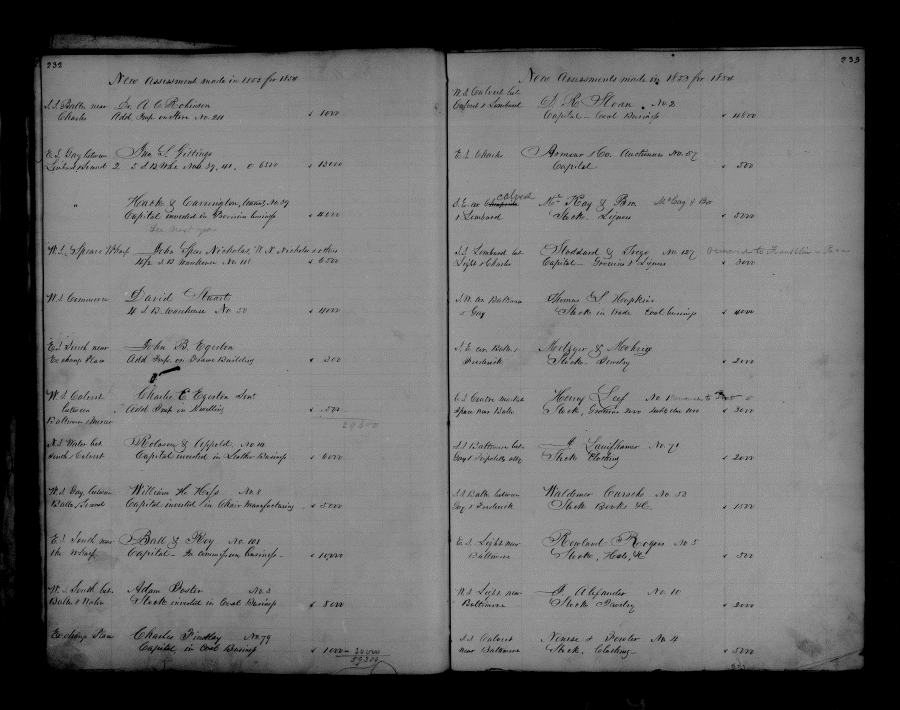 232
New Assessment made in 1853 for 1854
S.S. Balto. near Dr. A. C. Robinson
Charles Add. Imp. on Store No. 211 $ 1000
E.S. Gay between Jno. S. Gittings
Lombard & 2 S.B. Whs Nos. 39, 41, @ 6500 $ 13000
" Hack & Carrington, No. 39
Capital invested in Provision business $ 4000
See next year
W.S. Spears Wharf John Spear Nicholas, W. N. Nicholas & others
S.B. Warehouse No. $ 6500
W.S. Commerce David Stuart
4 S.B. Warehouse No. 50 $ 4000
E.S. South near John B. Egerton
Exchange Place Add. Imp. on Building $ 300
W.S. Calvert Charles C. Egerton Senr.
between Add. Imp. in Dwelling $ 500
Baltimore & Mercer 29300
N.S. Water bet. Robson & Appold No. 10
South & Calvert Capital invested in Leather Business $ 6000
W.S. Gay between William H. No. 8
Balto. & Capital invested in Chair Manufacturing $ 5000
E.S. South near Ball & Roy No. 101
the Wharf Capital in Commission business $ 10000
W.S. South bet. Adam No. 3
Balto. & Water Stock invested in Coal Business $ 8000
Exchange Place Charles Findlay No. 79
Capital in Coal Business $ 1000 30000
59300
233
New Assessments made in 1853 for 1854
N.S. Calvert bet. D. R. Sloan No. 2
& Lombard Capital Coal Business $ 4500
E.S. Charles & Co. Auctioneer No. 57
Capital $ 500
S.E. cor. Calvert Mc Kay & Bro.
& Lombard Stock. Liquors $ 5000
S.S. Lombard bet. Stoddard & No. 137 removed to Franklin
Light & Charles Capital Groceries & Liquors $ 3000
S.W. cor. Baltimore Thomas S. Hopkins
& Gay Stock in trade Coal business $ 4000
S.E. cor. Balto. & Metzger &
Frederick Stock Jewelry $ 2000
E.S. Centre Market Henry Leef No. 1 removed to
Space near Balto. Stock, Groceries 2000 1000 $ 3000
S.S. Baltimore bet. No. 71
Gay & alley Stock Clothing $ 2000
S.S. Balto. between Waldemer No. 53
Gay & Frederick Stock Books &c $ 1500
E.S. Light near Rowland Rogers No. 5
Baltimore Stock, Hats, &c $ 500
W.S. Light near J. Alexander No. 10
Baltimore Stock Jewelry $ 2000
S.S. Calvert & Fowler No. 4
near Baltimore Stock, Clothing $ 5000